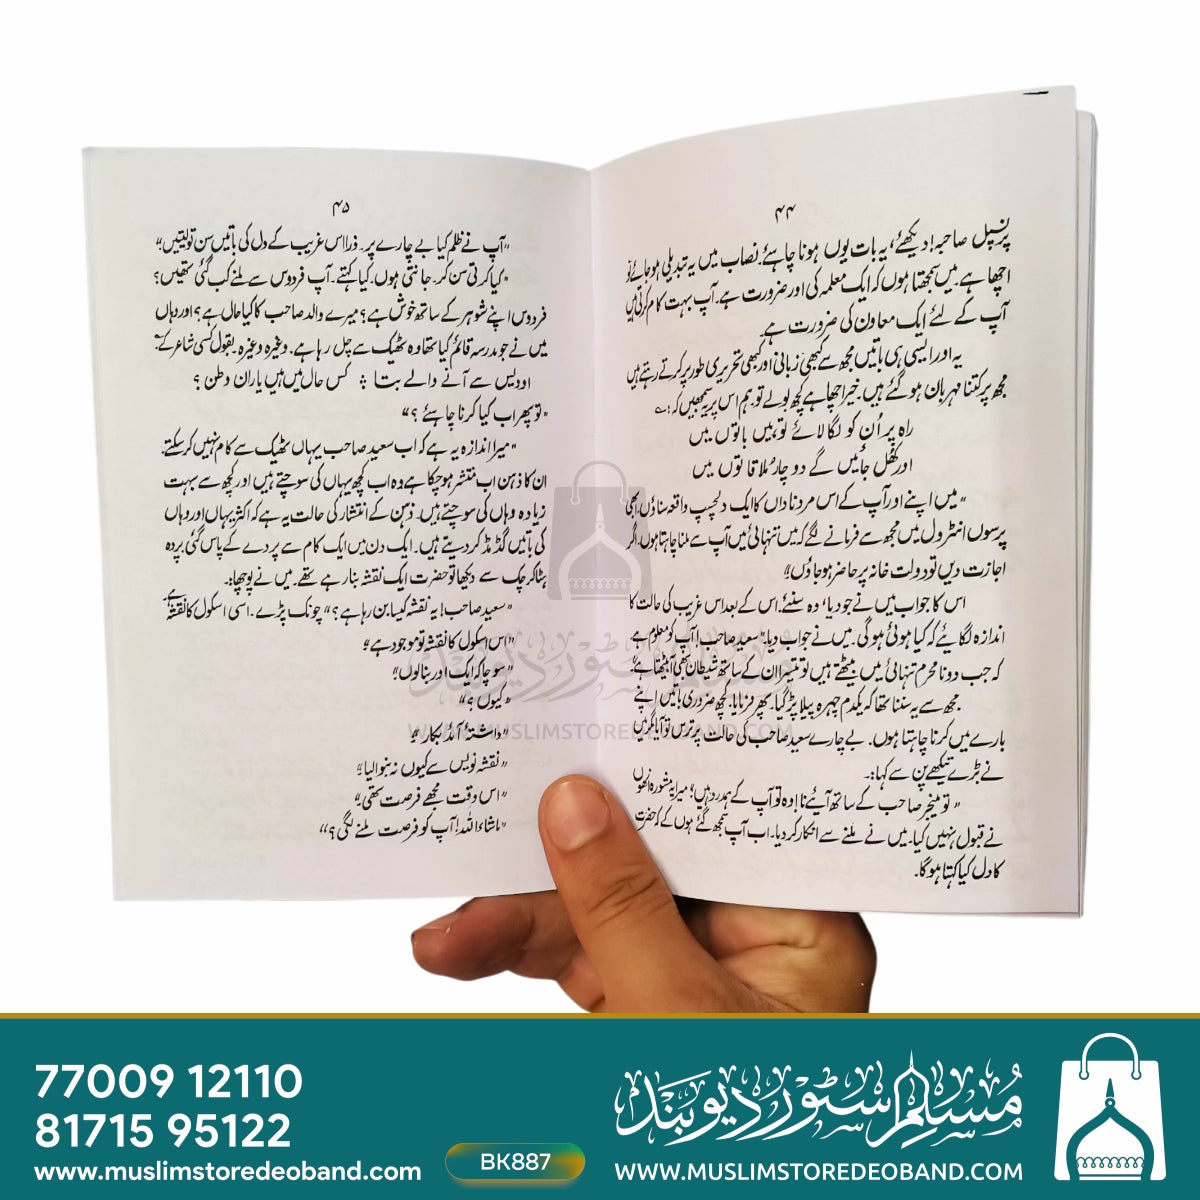 ۴۴
پرنسپل صاحبہ! دیکھئے، یہ بات یوں ہونا چاہئے. نصاب میں یہ تبدیلی ہو جائے تو
اچھا ہے. میں سمجھتا ہوں کہ ایک معلمہ کی اور ضرورت ہے. آپ بہت کام کرتی ہیں
آپ کے لئے ایک معاون کی ضرورت ہے.
یہ اور ایسی ہی باتیں مجھ سے کبھی زبانی اور کبھی تحریری طور پر کرتے رہتے ہیں
مجھ پر کتنا مہربان ہو گئے ہیں. خیر اچھا ہے کچھ بولے تو. ہم اس پر یہ سمجھیں کہ :؎
راہ پر اُن کو لگا لائے تو ہیں باتوں میں
اور کھُل جائیں گے دو چار ملاقاتوں میں
"میں اپنے اور آپ کے اس مرد ناداں کا ایک دلچسپ واقعہ سناؤں ابھی
پرسوں انٹرول میں مجھ سے فرمانے لگے کہ میں تنہائی میں آپ سے ملنا چاہتا ہوں، اگر
اجازت دیں تو دولت خانہ پر حاضر ہو جاؤں"
اس کا جواب میں نے جو دیا، وہ سنئے. اس کے بعد اس غریب کی حالت کا
اندازہ لگائیے کہ کیا ہوئی ہوگی. میں نے جواب دیا: "سعید صاحب! آپ کو معلوم ہے
کہ جب دو نا محرم تنہائی میں بیٹھتے ہیں تو تیسرا ان کے ساتھ شیطان بھی آ بیٹھتا ہے"
مجھ سے یہ سننا تھا کہ یکدم چہرہ پیلا پڑ گیا. پھر فرمایا. کچھ ضروری باتیں اپنے
بارے میں کرنا چاہتا ہوں. بے چارے سعید صاحب کی حالت پر ترس تو آیا مگر میں
نے بڑے تیکھے پن سے کہا:۔
"تو منیجر صاحب کے ساتھ آئیے نا! وہ تو آپ کے ہمدرد ہیں؛ میرا یہ مشورہ انھوں
نے قبول نہیں کیا. میں نے ملنے سے انکار کر دیا. اب آپ سمجھ گئے ہوں گے کہ حضرت
کا دل کیا کہتا ہو گا.
۴۵
"آپ نے ظلم کیا بے چارے پر. ذرا اس غریب کے دل کی باتیں سن تو لیتیں"
"کیا کرتی سن کر. جانتی ہوں. کیا کہتے. آپ فردوس سے ملنے کب گئی تھیں؟
فردوس اپنے شوہر کے ساتھ خوش ہے؟ میرے والد صاحب کا کیا حال ہے؟ اور وہاں
میں نے جو مدرسہ قائم کیا تھا وہ ٹھیک سے چل رہا ہے. وغیرہ وغیرہ. بقول کسی شاعر کے ؎
او دیس سے آنے والے بتا ؞ کس حال میں ہیں یاران وطن ؟
"تو پھر اب کیا کرنا چاہئے ؟"
"میرا اندازہ یہ ہے کہ اب سعید صاحب یہاں ٹھیک سے کام نہیں کر سکتے.
ان کا ذہن اب منتشر ہو چکا ہے وہ اب کچھ یہاں کی سوچتے ہیں اور کچھ سے بہت
زیادہ وہاں کی سوچتے ہیں. ذہن کے انتشار کی حالت یہ ہے کہ اکثر یہاں اور وہاں
کی باتیں گڈ مڈ کر دیتے ہیں. ایک دن میں ایک کام سے پردے کے پاس گئی پردہ
ہٹا کر چک سے دیکھا تو حضرت ایک نقشہ بنا رہے تھے. میں نے پوچھا:۔
"سعید صاحب! یہ نقشہ کیسا بن رہا ہے؟" چونک پڑے. اسی اسکول کا نقشہ ہے
"اس اسکول کا نقشہ تو موجود ہے"
"سوچا کہ ایک اور بنا لوں"
"کیوں ؟"
"داشتہ آید بکار"
"نقشہ نویس سے کیوں نہ بنوا لیا"
"اس وقت مجھے فرصت تھی"
"ماشاء اللہ! آپ کو فرصت ملنے لگی ؟"
مسلم سٹور دیوبند
WWW.MUSLIMSTOREDEOBAND.COM
77009 12110
81715 95122
www.muslimstoredeoband.com
BK887
مسلم سٹور دیوبند
WWW.MUSLIMSTOREDEOBAND.COM